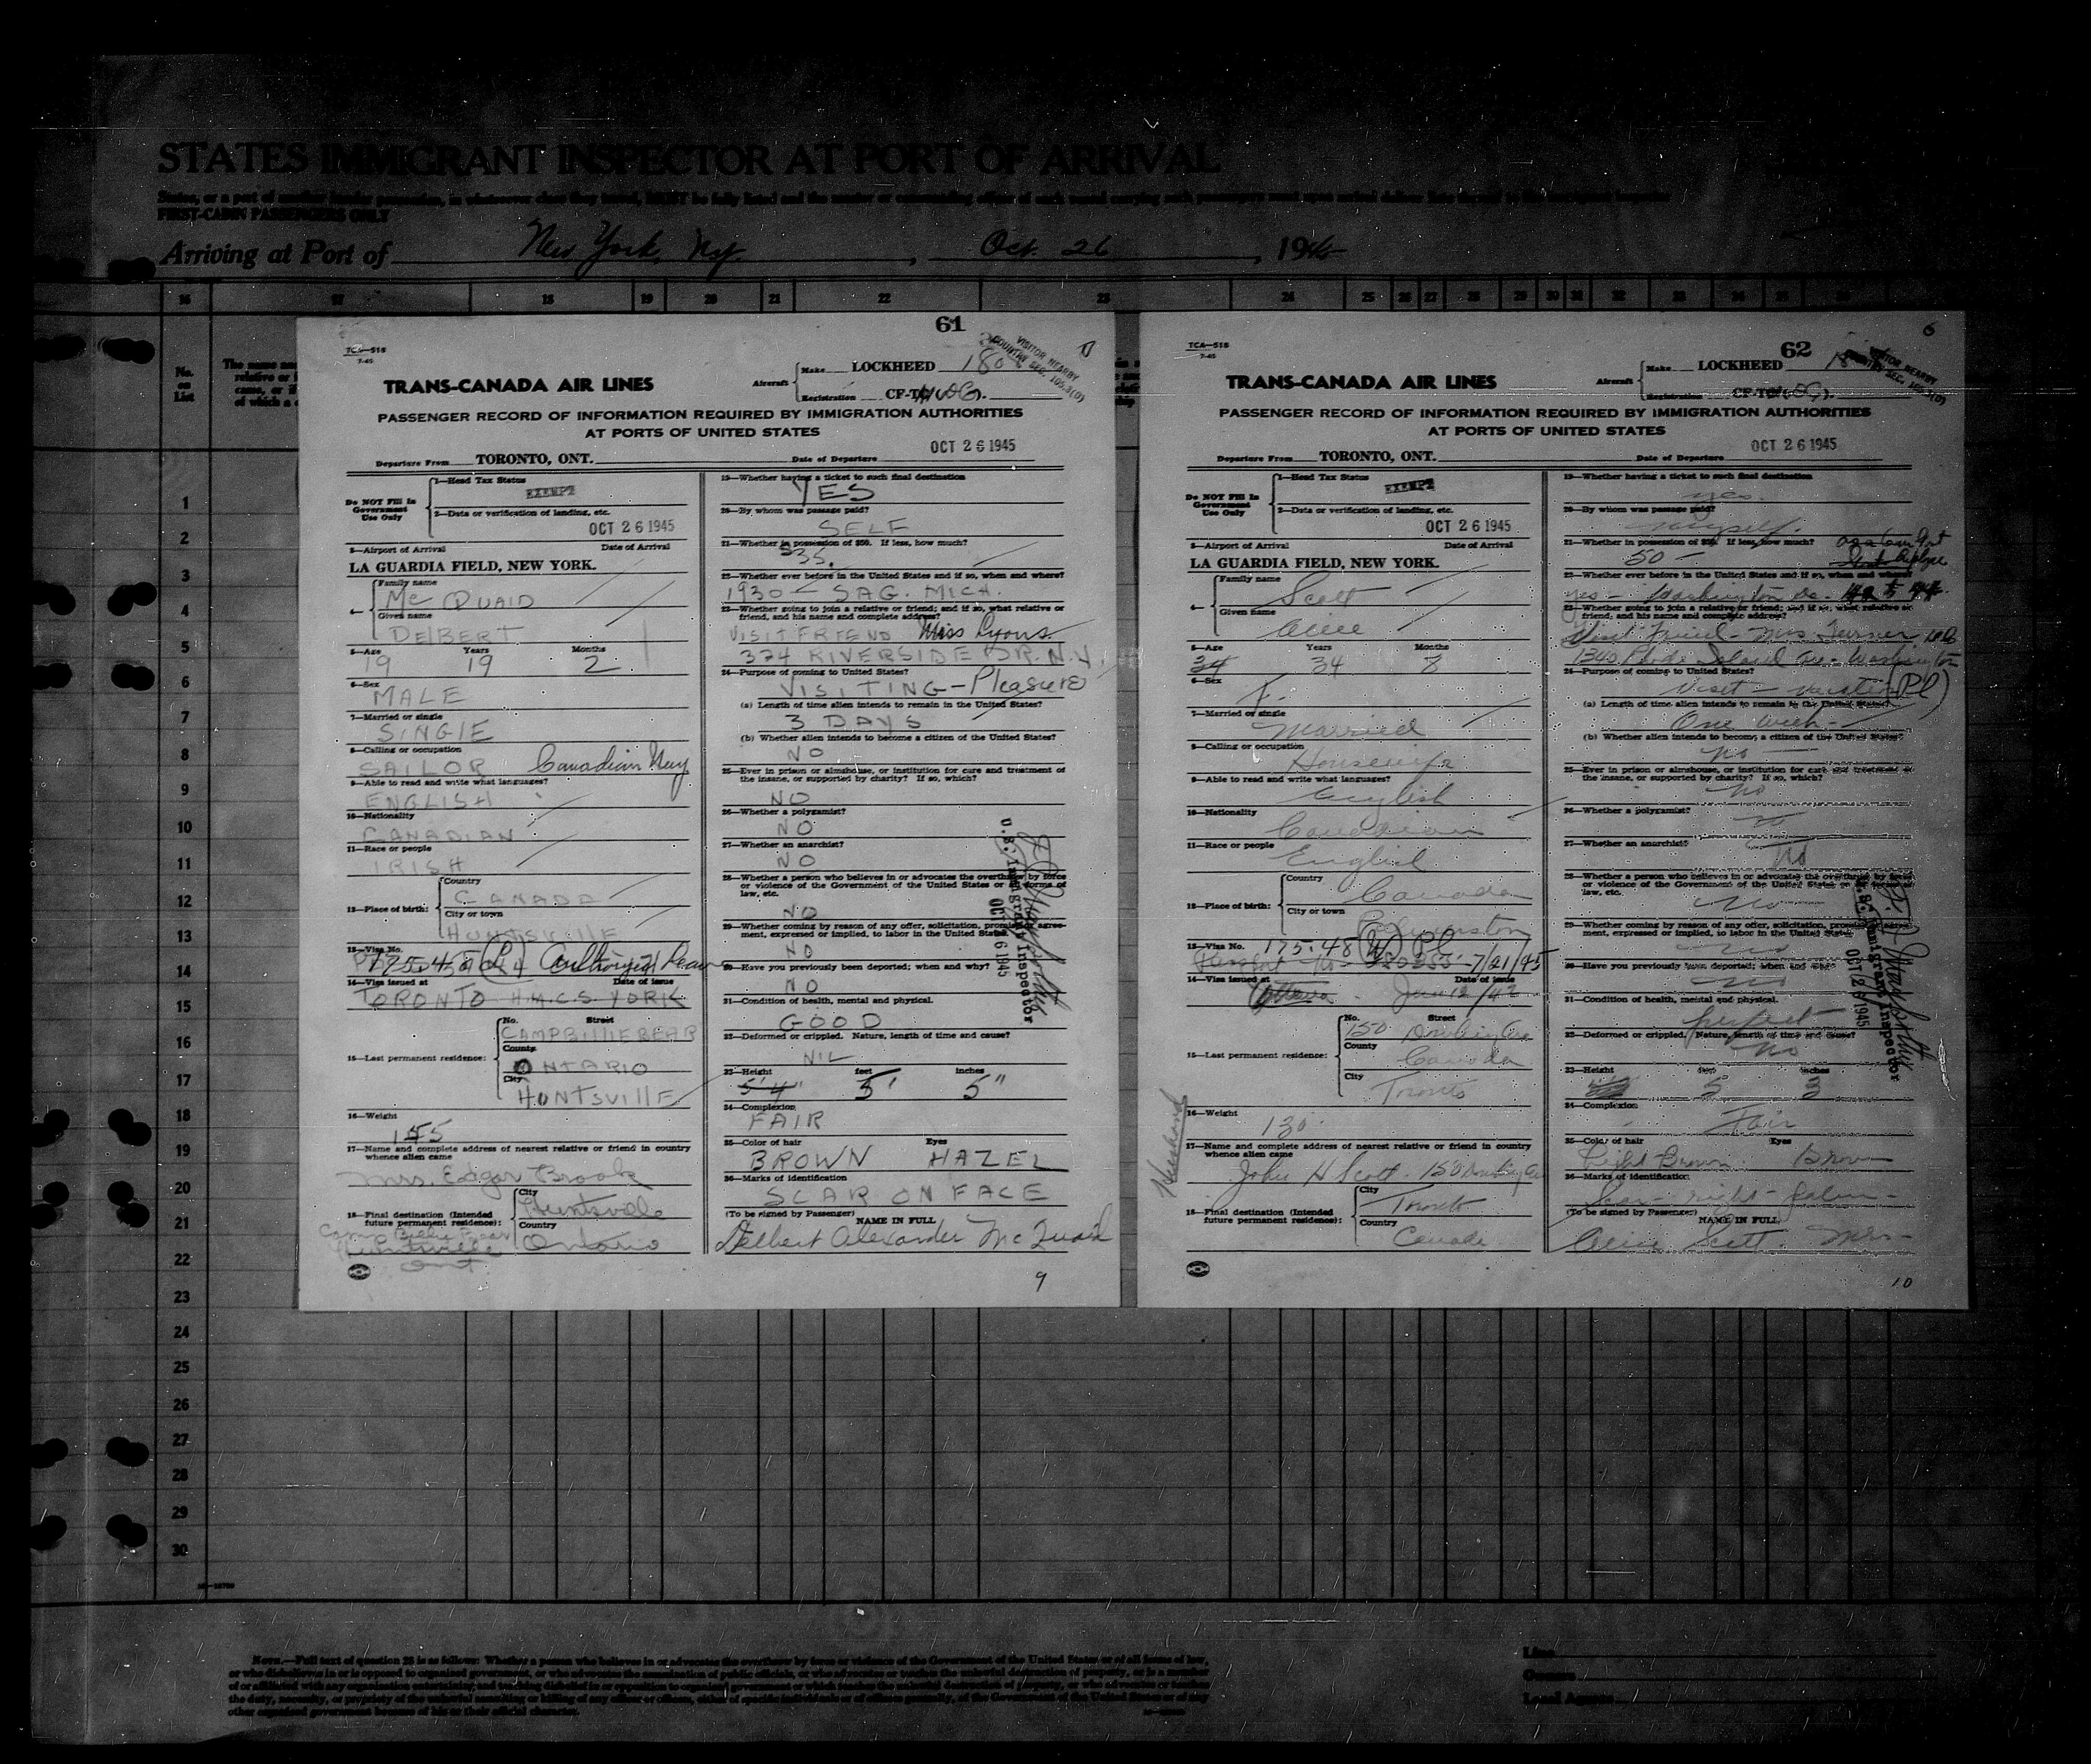 STATES IMMIGRANT INSPECTOR AT PORT OF ARRIVAL
FIRST-CABIN PASSENGERS ONLY
Arriving at Port of New York, Ny. , Oct. 26 , 1945
16 17 18 19 20 21 22 23 24 25 26 27 28 29 30 31 32 33 34 35 36
No. on List
1
2
3
4
5
6
7
8
9
10
11
12
13
14
15
16
17
18
19
20
21
22
23
24
25
26
27
28
29
30
61
TCA—518
7-45
VISITOR NEARBY
COUNTRY SEC. 105.3(D)
TRANS-CANADA AIR LINES
Aircraft
Make LOCKHEED 18
Registration CF-T
PASSENGER RECORD OF INFORMATION REQUIRED BY IMMIGRATION AUTHORITIES
AT PORTS OF UNITED STATES
Departure From TORONTO, ONT.
Date of Departure OCT 26 1945
Do NOT Fill In
Government
Use Only
1—Head Tax Status
EXEMPT
2—Data or verification of landing, etc.
OCT 26 1945
3—Airport of Arrival Date of Arrival
LA GUARDIA FIELD, NEW YORK.
4—
Family name
Mc QUAID
Given name
DElBERT
5—Age Years Months
19 19 2
6—Sex
MALE
7—Married or single
SINGlE
8—Calling or occupation
SAILOR Canadian Navy
9—Able to read and write what languages?
ENGLISH
10—Nationality
CANADIAN
11—Race or people
IRISH
12—Place of birth:
Country
CANADA
City or town
HUNTSVIllE
13—Visa No.
175.48 Authorized Leave
14—Visa issued at Date of issue
TORONTO H.M.C.S. YORK
15—Last permanent residence:
No. Street
CAMP BIllIE BEAR
County
ONTARIO
City
HUNTSVIllE
16—Weight
155
17—Name and complete address of nearest relative or friend in country
whence alien came
Mrs. Edgar Brook
18—Final destination (Intended
future permanent residence):
City
Huntsville
Country
Ontario
Camp Billie Bear
Huntsville
Ont
19—Whether having a ticket to such final destination
YES
20—By whom was passage paid?
SELF
21—Whether in possession of $50. If less, how much?
$35.
22—Whether ever before in the United States and if so, when and where?
1930 — SAG. MICH.
23—Whether going to join a relative or friend; and if so, what relative or
friend, and his name and complete address?
VISIT FRIEND Miss Lyons
374 RIVERSIDE DR. N.Y.
24—Purpose of coming to United States?
VISITING - Pleasure
(a) Length of time alien intends to remain in the United States?
3 DAYS
(b) Whether alien intends to become a citizen of the United States?
NO
25—Ever in prison or almshouse, or institution for care and treatment of
the insane, or supported by charity? If so, which?
NO
26—Whether a polygamist?
NO
27—Whether an anarchist?
NO
28—Whether a person who believes in or advocates the overthrow by force
or violence of the Government of the United States or all forms of
law, etc.
NO
29—Whether coming by reason of any offer, solicitation, promise or agree-
ment, expressed or implied, to labor in the United States.
NO
30—Have you previously been deported; when and why?
NO
31—Condition of health, mental and physical.
GOOD
32—Deformed or crippled. Nature, length of time and cause?
NIL
33—Height feet inches
5'4" 5' 5"
34—Complexion
FAIR
35—Color of hair Eyes
BROWN HAZEL
36—Marks of identification
SCAR ON FACE
(To be signed by Passenger) NAME IN FULL
Delbert Alexander McQuaid
U.S. Immigrant Inspector
OCT 26 1945
9
6
62
TCA—518
7-45
VISITOR NEARBY
COUNTRY SEC. 105.3(D)
TRANS-CANADA AIR LINES
Aircraft
Make LOCKHEED 18
Registration CF-T
PASSENGER RECORD OF INFORMATION REQUIRED BY IMMIGRATION AUTHORITIES
AT PORTS OF UNITED STATES
Departure From TORONTO, ONT.
Date of Departure OCT 26 1945
Do NOT Fill In
Government
Use Only
1—Head Tax Status
EXEMPT
2—Data or verification of landing, etc.
OCT 26 1945
3—Airport of Arrival Date of Arrival
LA GUARDIA FIELD, NEW YORK.
4—
Family name
Scott
Given name
Alice
5—Age Years Months
34 34 8
6—Sex
F.
7—Married or single
Married
8—Calling or occupation
Housewife
9—Able to read and write what languages?
English
10—Nationality
Canadian
11—Race or people
English
12—Place of birth:
Country
Canada
City or town
13—Visa No.
175.48 Pl
7/21/45
14—Visa issued at Date of issue
Ottawa
15—Last permanent residence:
No. Street
150
County
Canada
City
Toronto
16—Weight
130
Husband
17—Name and complete address of nearest relative or friend in country
whence alien came
John H Scott. 150
18—Final destination (Intended
future permanent residence):
City
Toronto
Country
Canada
19—Whether having a ticket to such final destination
yes.
20—By whom was passage paid?
Myself.
21—Whether in possession of $50. If less, how much?
50 —
22—Whether ever before in the United States and if so, when and where?
yes — Washington
23—Whether going to join a relative or friend; and if so, what relative or
friend, and his name and complete address?
Visit Friend — Mrs Turner
1340 Rhode Island Ave. Washington
24—Purpose of coming to United States?
Visit — vacation (Pl)
(a) Length of time alien intends to remain in the United States?
One week —
(b) Whether alien intends to become a citizen of the United States?
no —
25—Ever in prison or almshouse, or institution for care and treatment of
the insane, or supported by charity? If so, which?
no
26—Whether a polygamist?
no
27—Whether an anarchist?
no
28—Whether a person who believes in or advocates the overthrow by force
or violence of the Government of the United States or all forms of
law, etc.
no
29—Whether coming by reason of any offer, solicitation, promise or agree-
ment, expressed or implied, to labor in the United States.
no
30—Have you previously been deported; when and why?
no
31—Condition of health, mental and physical.
perfect
32—Deformed or crippled. Nature, length of time and cause?
no
33—Height feet inches
5 3
34—Complexion
Fair
35—Color of hair Eyes
Light Brown Brown
36—Marks of identification
Scar — right — palm —
(To be signed by Passenger) NAME IN FULL
Alice Scott. Mrs —
U.S. Immigrant Inspector
OCT 26 1945
10
Note.—Full text of question 28 is as follows: Whether a person who believes in or advocates the overthrow by force or violence of the Government of the United States or of all forms of law,
Line
Owners
Local Agents